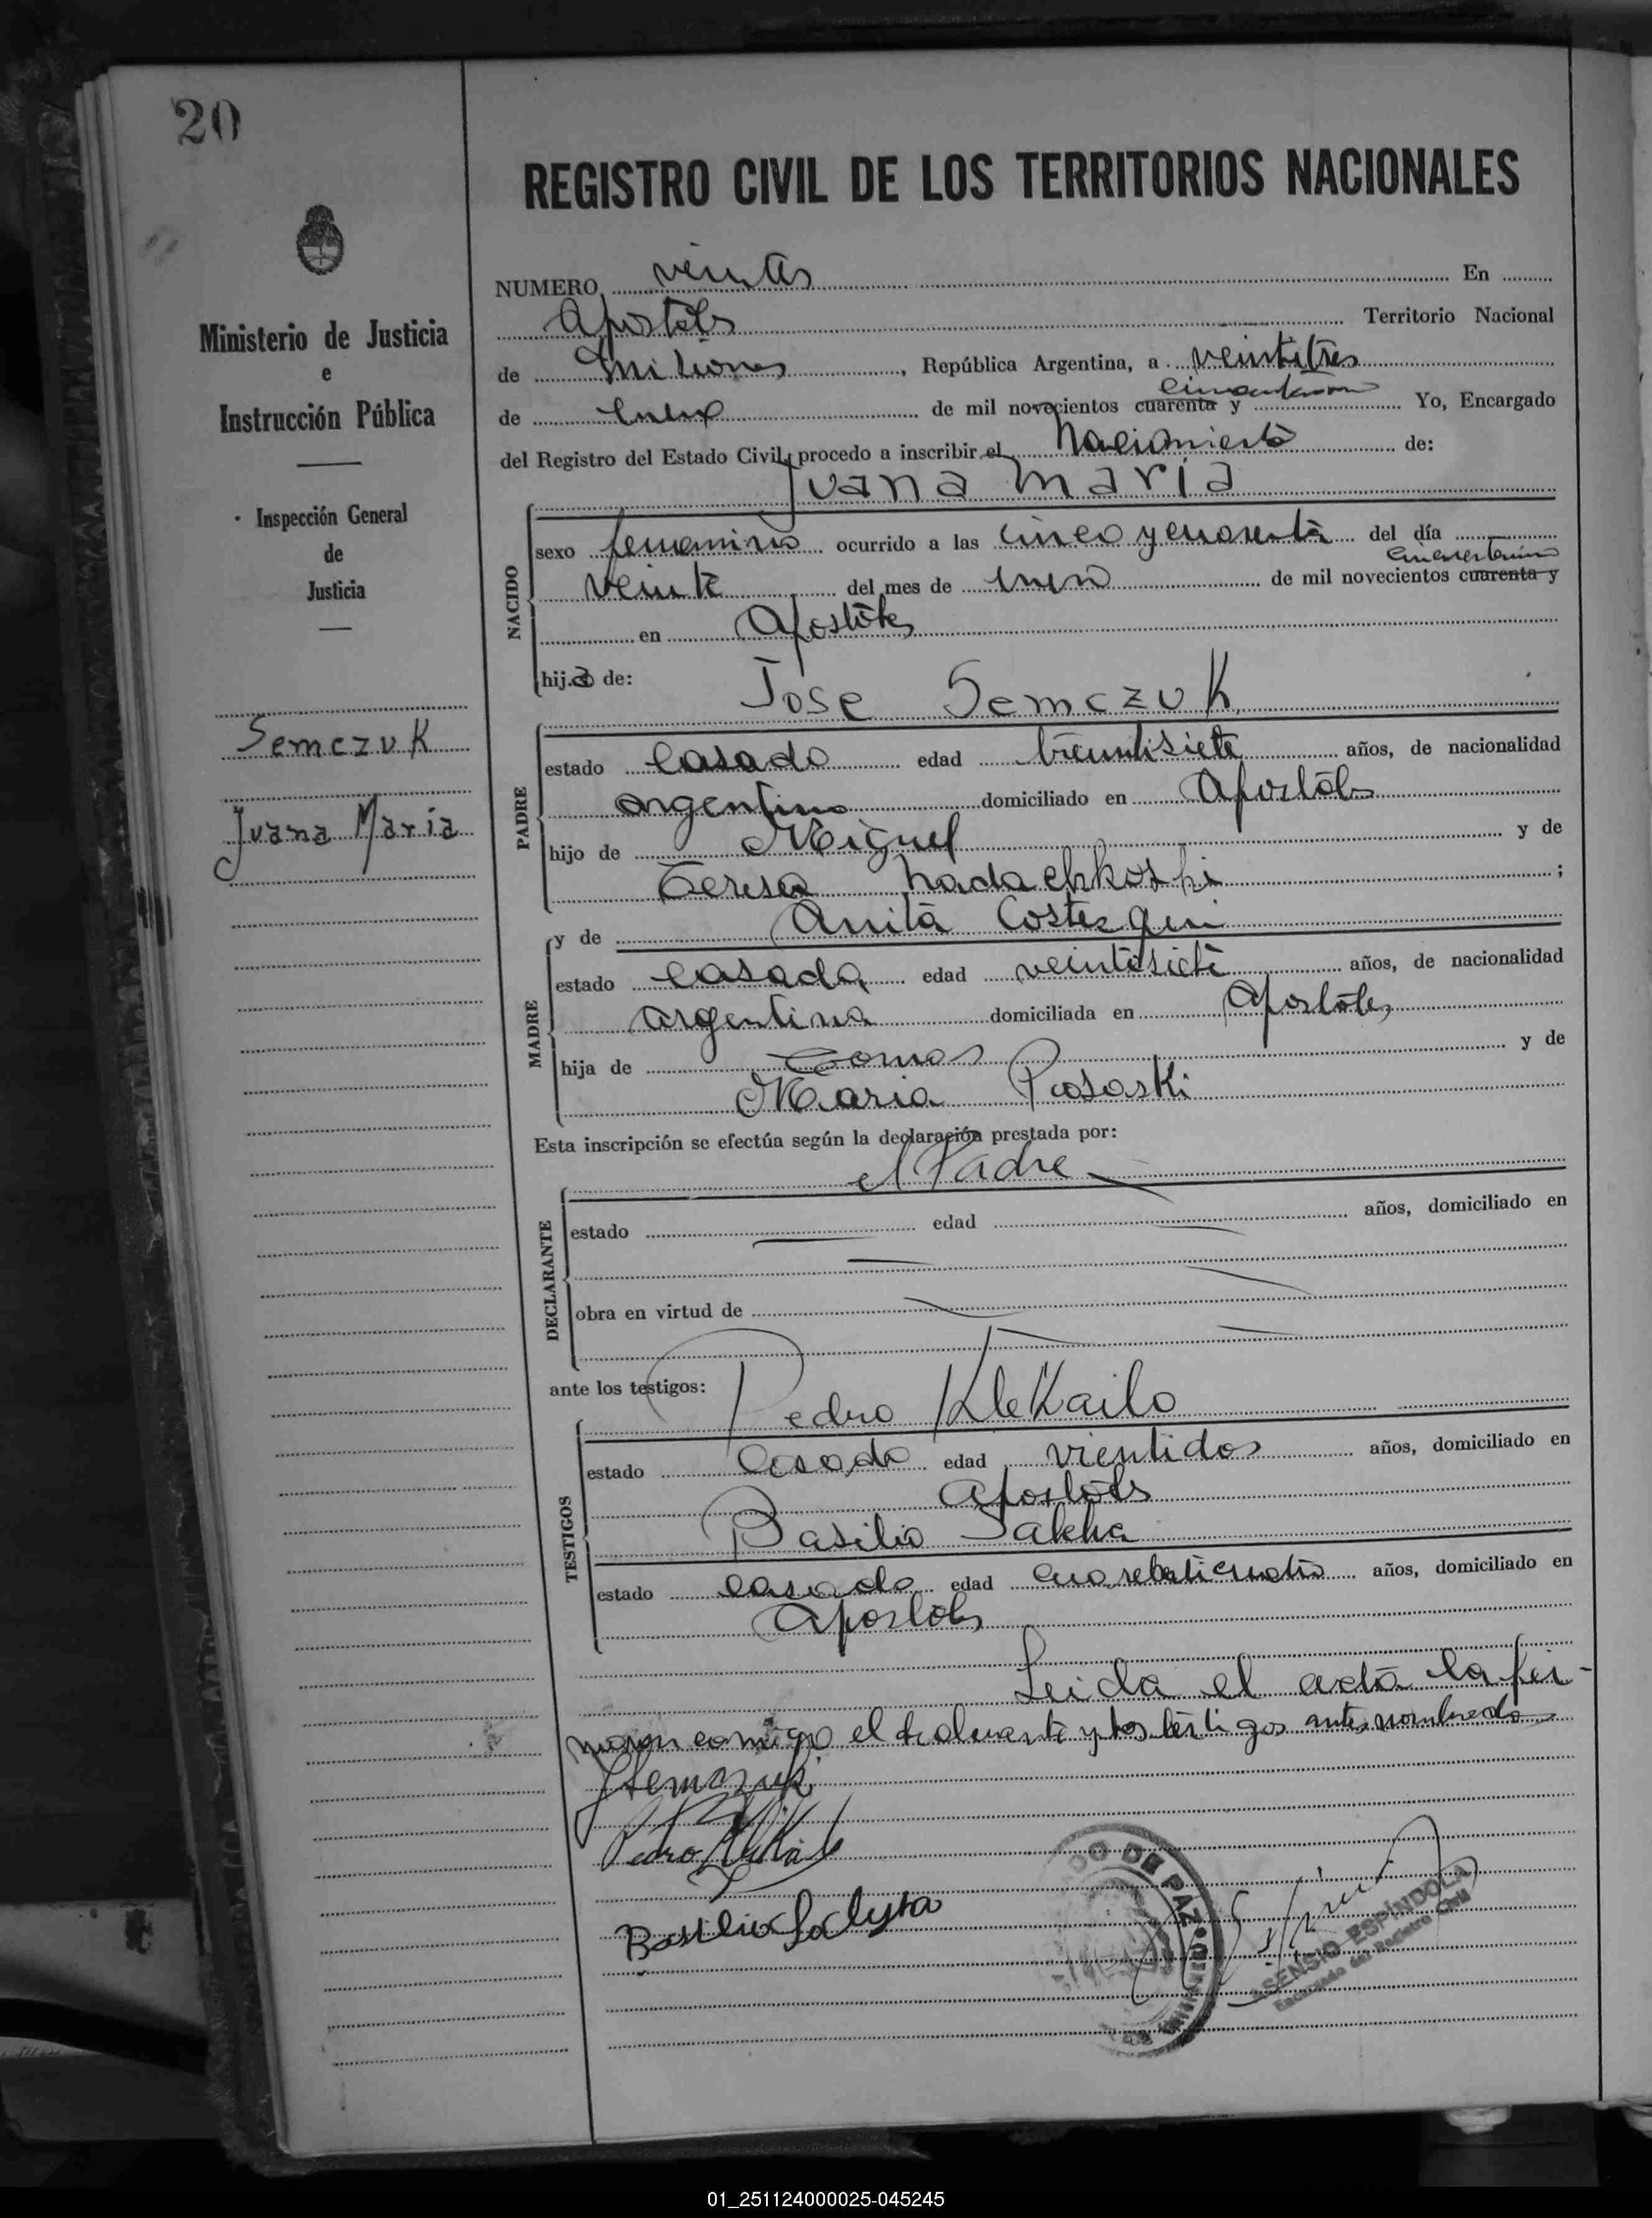 20
REGISTRO CIVIL DE LOS TERRITORIOS NACIONALES
Ministerio de Justicia
e
Instrucción Pública
Inspección General
de
Justicia
Semczuk
Juana Maria
NUMERO veinte En
Apostoles Territorio Nacional
de Misiones, República Argentina, a veintitres
de enero de mil novecientos cuarenta y Yo, Encargado
del Registro del Estado Civil, procedo a inscribir el Nacimiento de:
Juana Maria
NACIDO
sexo femenino ocurrido a las cinco y cuarenta del día
veinte del mes de enero de mil novecientos cuarenta y
en Apostoles
hija de:
Jose Semczuk
PADRE
estado casado edad treintisiete años, de nacionalidad
argentino domiciliado en Apostoles
hijo de Miguel y de
Teresa ;
MADRE
y de Anita
estado casada edad veintisiete años, de nacionalidad
argentina domiciliada en Apostoles
hija de Tomas y de
Maria
Esta inscripción se efectúa según la declaración prestada por:
el Padre
DECLARANTE
estado edad años, domiciliado en
obra en virtud de
ante los testigos:
Pedro Klekailo
TESTIGOS
estado casado edad vientidos años, domiciliado en
Apostoles
Basilio
estado casado edad años, domiciliado en
Apostoles
Leida el acta la fir-
maron comigo el declarante y los testigos antes nombrados
JSemczuk
Pedro Klekailo
Basilio
DO DE PAZ
ASENSIO ESPINDOLA
Encargado del Registro Civil
01_251124000025-045245